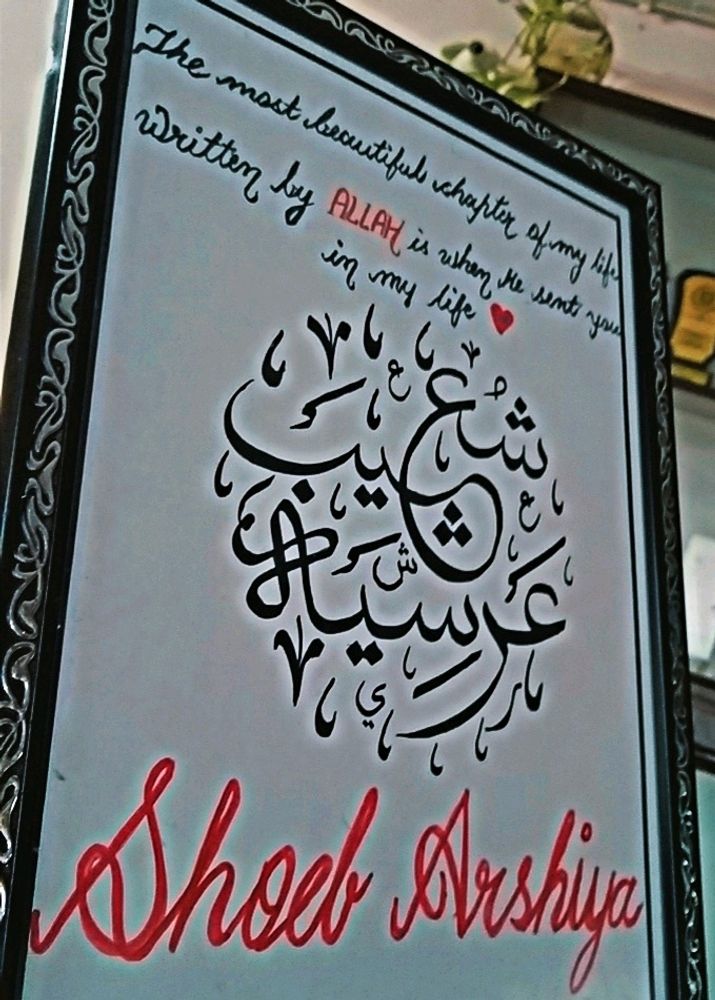 The most beautiful chapter of my life
Written by ALLAH is when He sent you
in my life ❤
شُعَيب
عَرشِيَاه
Shoeb Arshiya